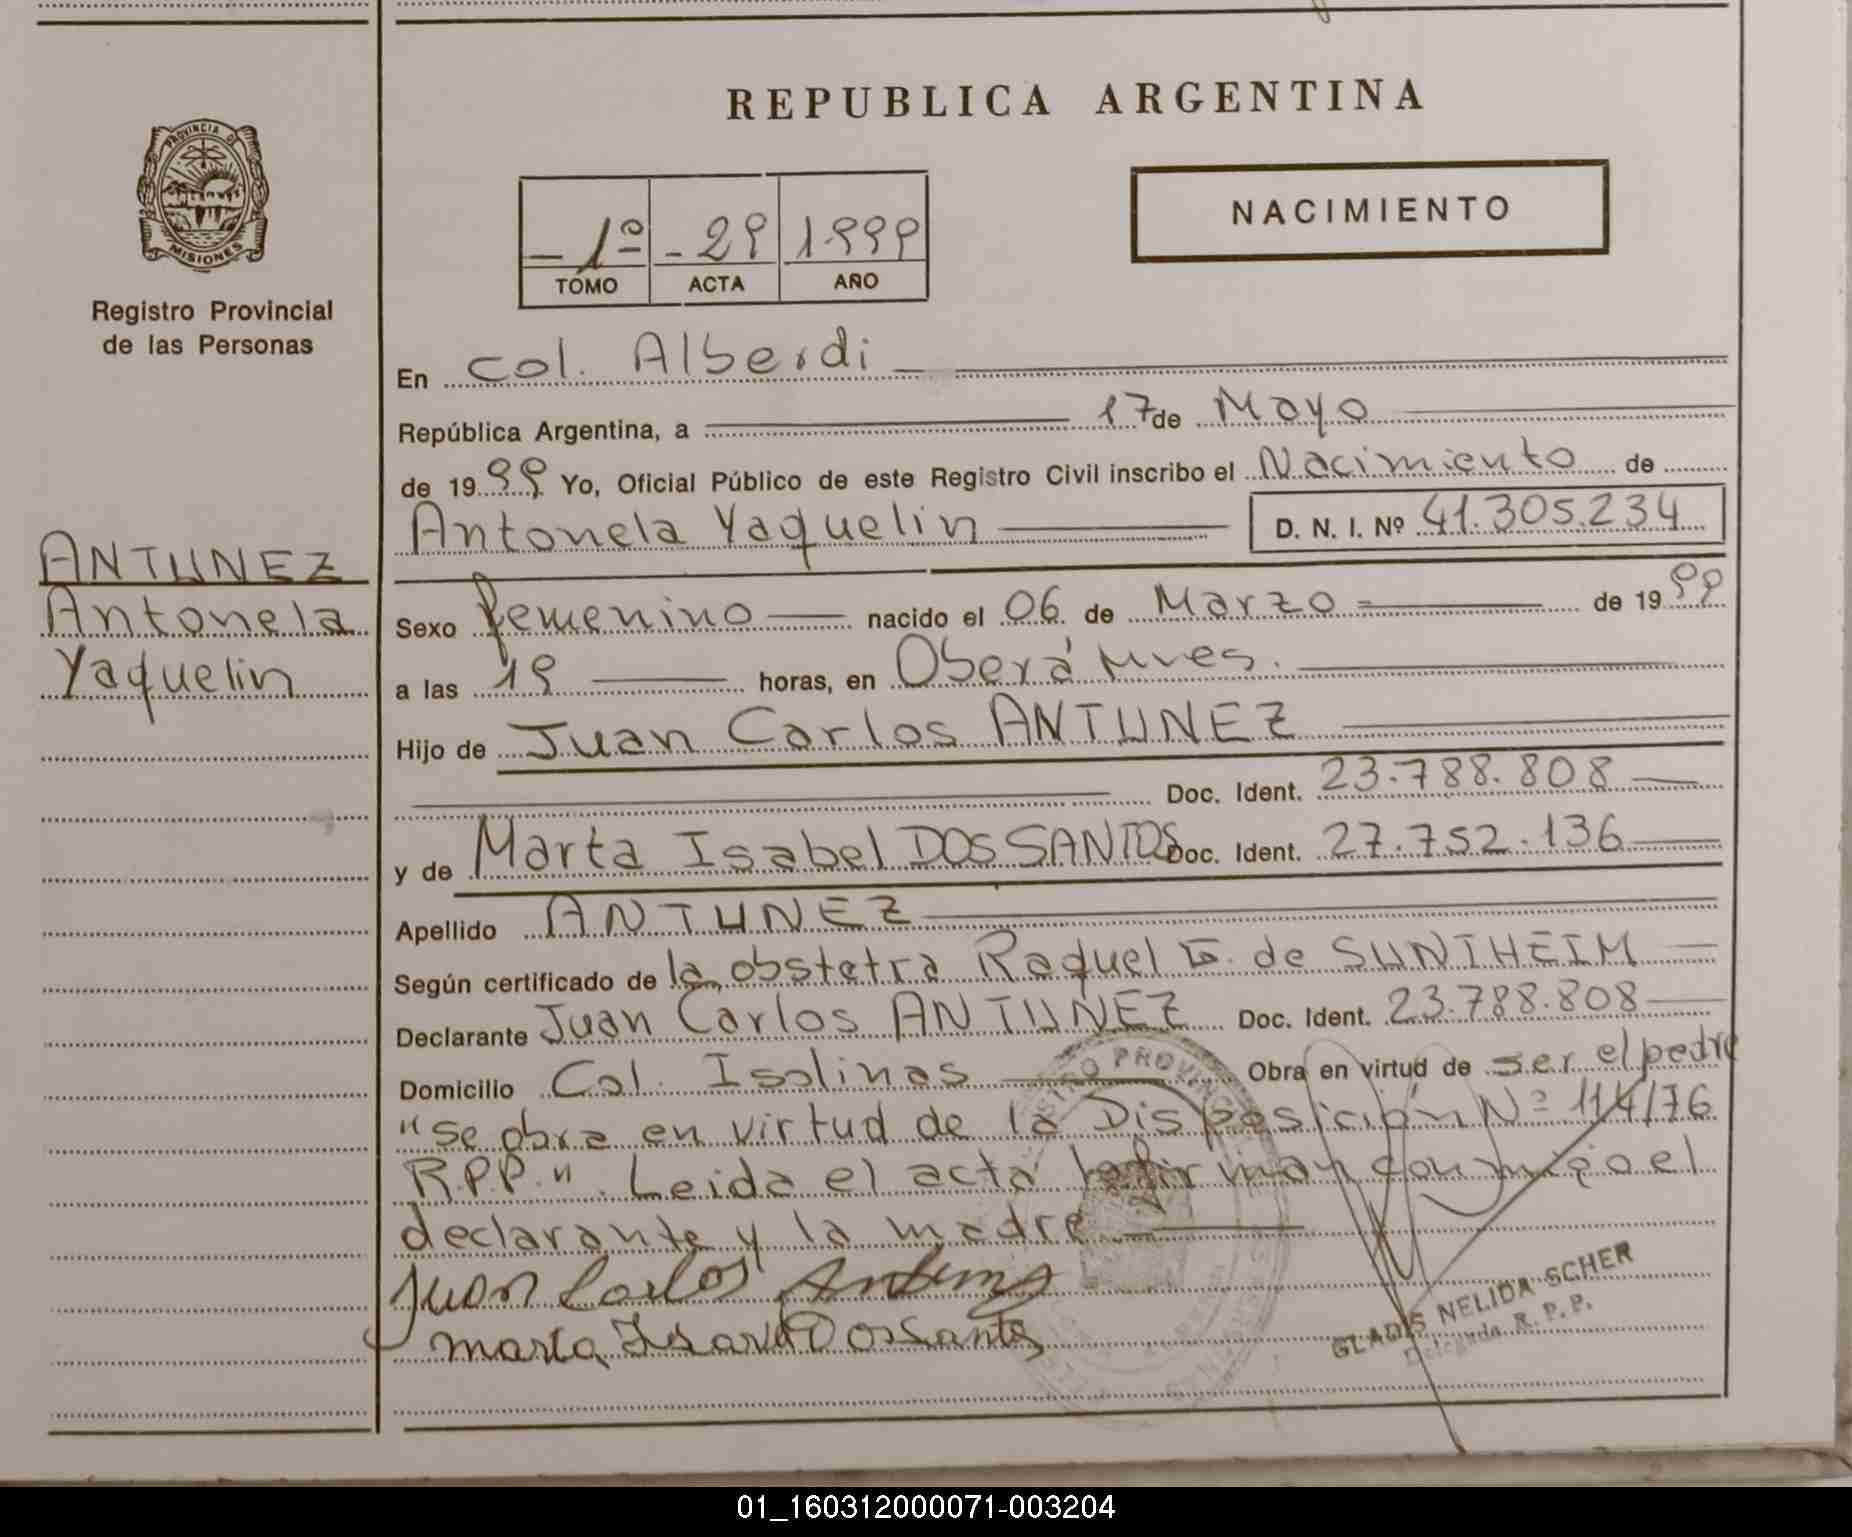 REPUBLICA ARGENTINA
PROVINCIA D
MISIONES
Registro Provincial
de las Personas
NACIMIENTO
1º 29 1999
TOMO ACTA AÑO
En Col. Alberdi
República Argentina, a 17 de Mayo
de 1999 Yo, Oficial Público de este Registro Civil inscribo el Nacimiento de
Antonela Yaquelin D. N. I. Nº 41.305.234
ANTUNEZ
Antonela
Yaquelin
Sexo femenino nacido el 06 de Marzo de 1999
a las 19 horas, en Oberá Mnes.
Hijo de Juan Carlos ANTUNEZ
Doc. Ident. 23.788.808
y de Marta Isabel DOS SANTOS Doc. Ident. 27.752.136
Apellido ANTUNEZ
Según certificado de la obstetra Raquel G. de SUNTHEIM
Declarante Juan Carlos ANTUNEZ Doc. Ident. 23.788.808
Domicilio Col. Isolinas Obra en virtud de ser el padre
"se obra en virtud de la Disposición Nº 114/76
R.P.P.". Leida el acta la firman conmigo el
declarante y la madre
Juan Carlos Antunez
Marta Isabel Dos Santos
GLADIS NELIDA SCHER
Delegada R. P. P.
01_160312000071-003204